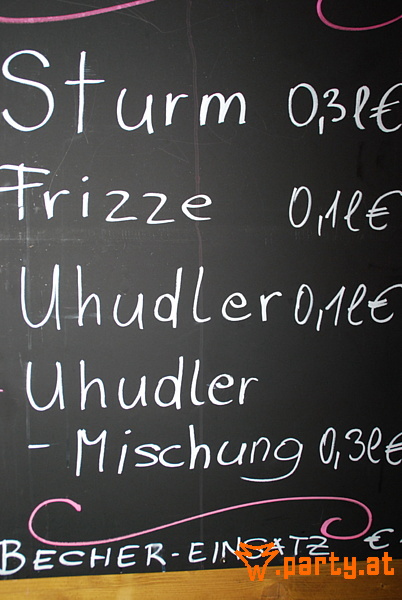 Sturm 0,3l €
Frizze 0,1l €
Uhudler 0,1l €
Uhudler
- Mischung 0,3l €
BECHER-EINSATZ €
party.at